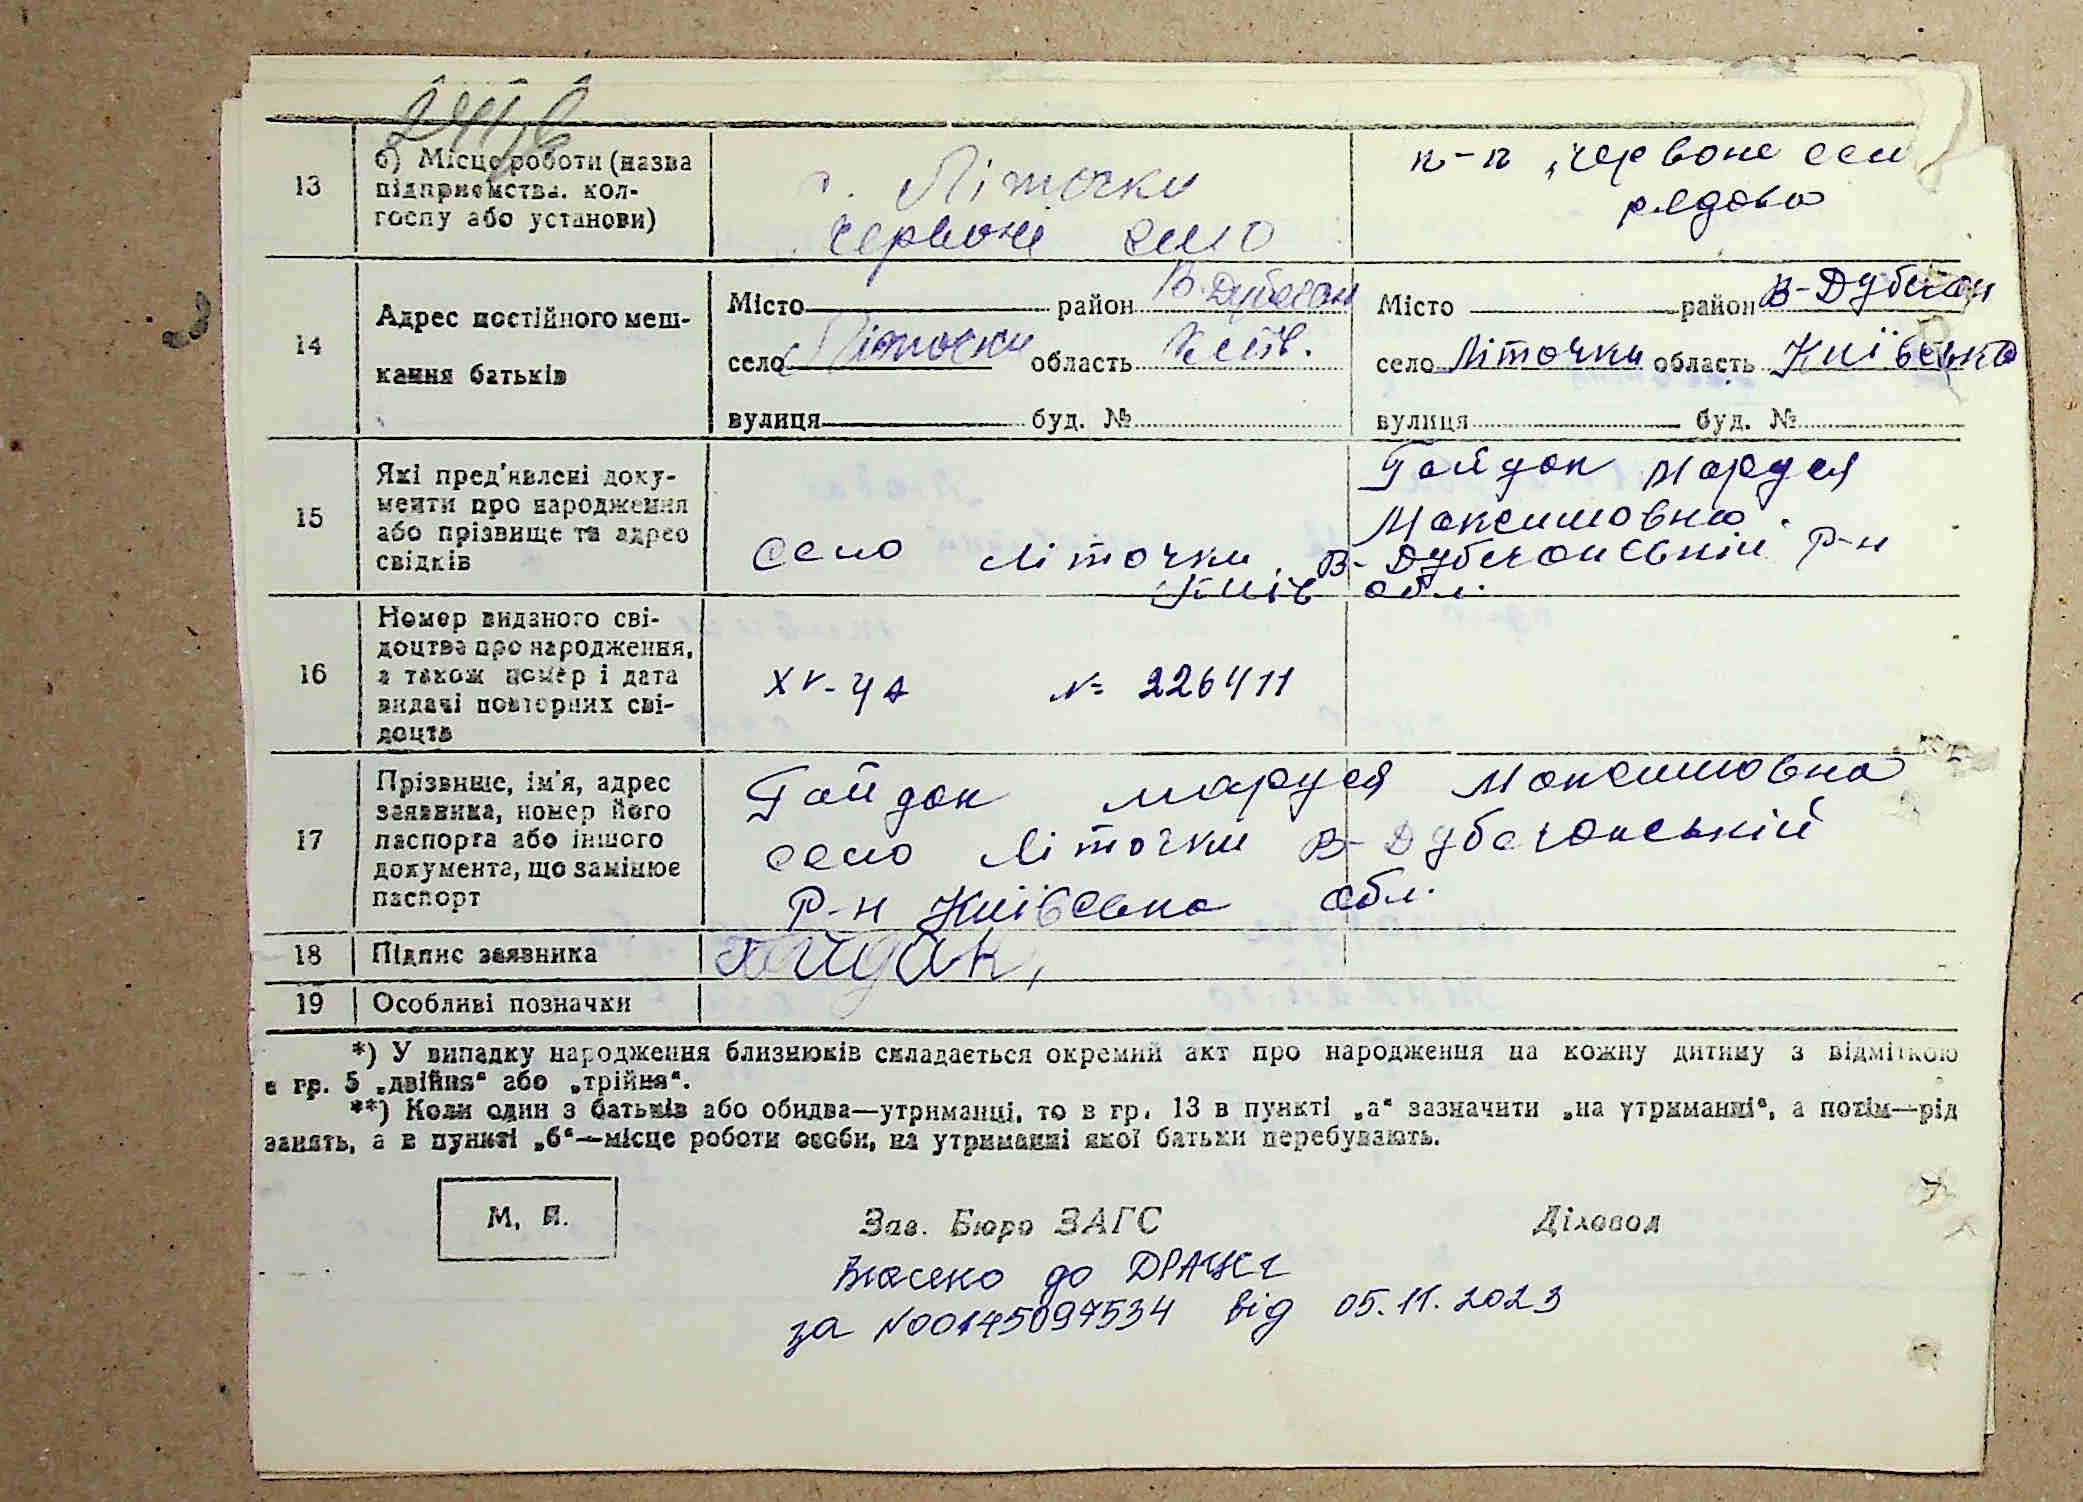 13
б) Місце роботи (назва
підприємства, кол-
госпу або установи)
с. Літочки
Червоне село
к-п „Червоне село
рядова
14
Адрес постійного меш-
кання батьків
Місто район В-Дубечан
село Літочки область Київ.
вулиця буд. №
Місто район В-Дубечан
село Літочки область Київська
вулиця буд. №
15
Які пред'явлені доку-
менти про народження
або прізвище та адрес
свідків
Гайдак Маруся
Максимовна.
село Літочки, В-Дубечанській р-н
Київ обл.
16
Номер виданого сві-
доцтва про народження,
а також номер і дата
видачі повторних сві-
доцтв
XV-ЧА № 226411
17
Прізвище, ім'я, адрес
заявника, номер його
паспорта або іншого
документа, що замінює
паспорт
Гайдак Маруся Максимовна
село Літочки В-Дубечанській
Р-н Київська обл.
18 Підпис заявника Гайдак,
19 Особливі позначки
*) У випадку народження близнюків складається окремий акт про народження на кожну дитину з відміткою
в гр. 5 „двійня“ або „трійня“.
**) Коли один з батьків або обидва—утриманці, то в гр. 13 в пункті „а“ зазначити „на утриманні“, а потім—рід
занять, а в пункті „б“—місце роботи особи, на утриманні якої батьки перебувають.
М. П.
Зав. Бюро ЗАГС
Діловод
Внесено до ДРАЦСГ
за №00145097534 від 05.11.2023